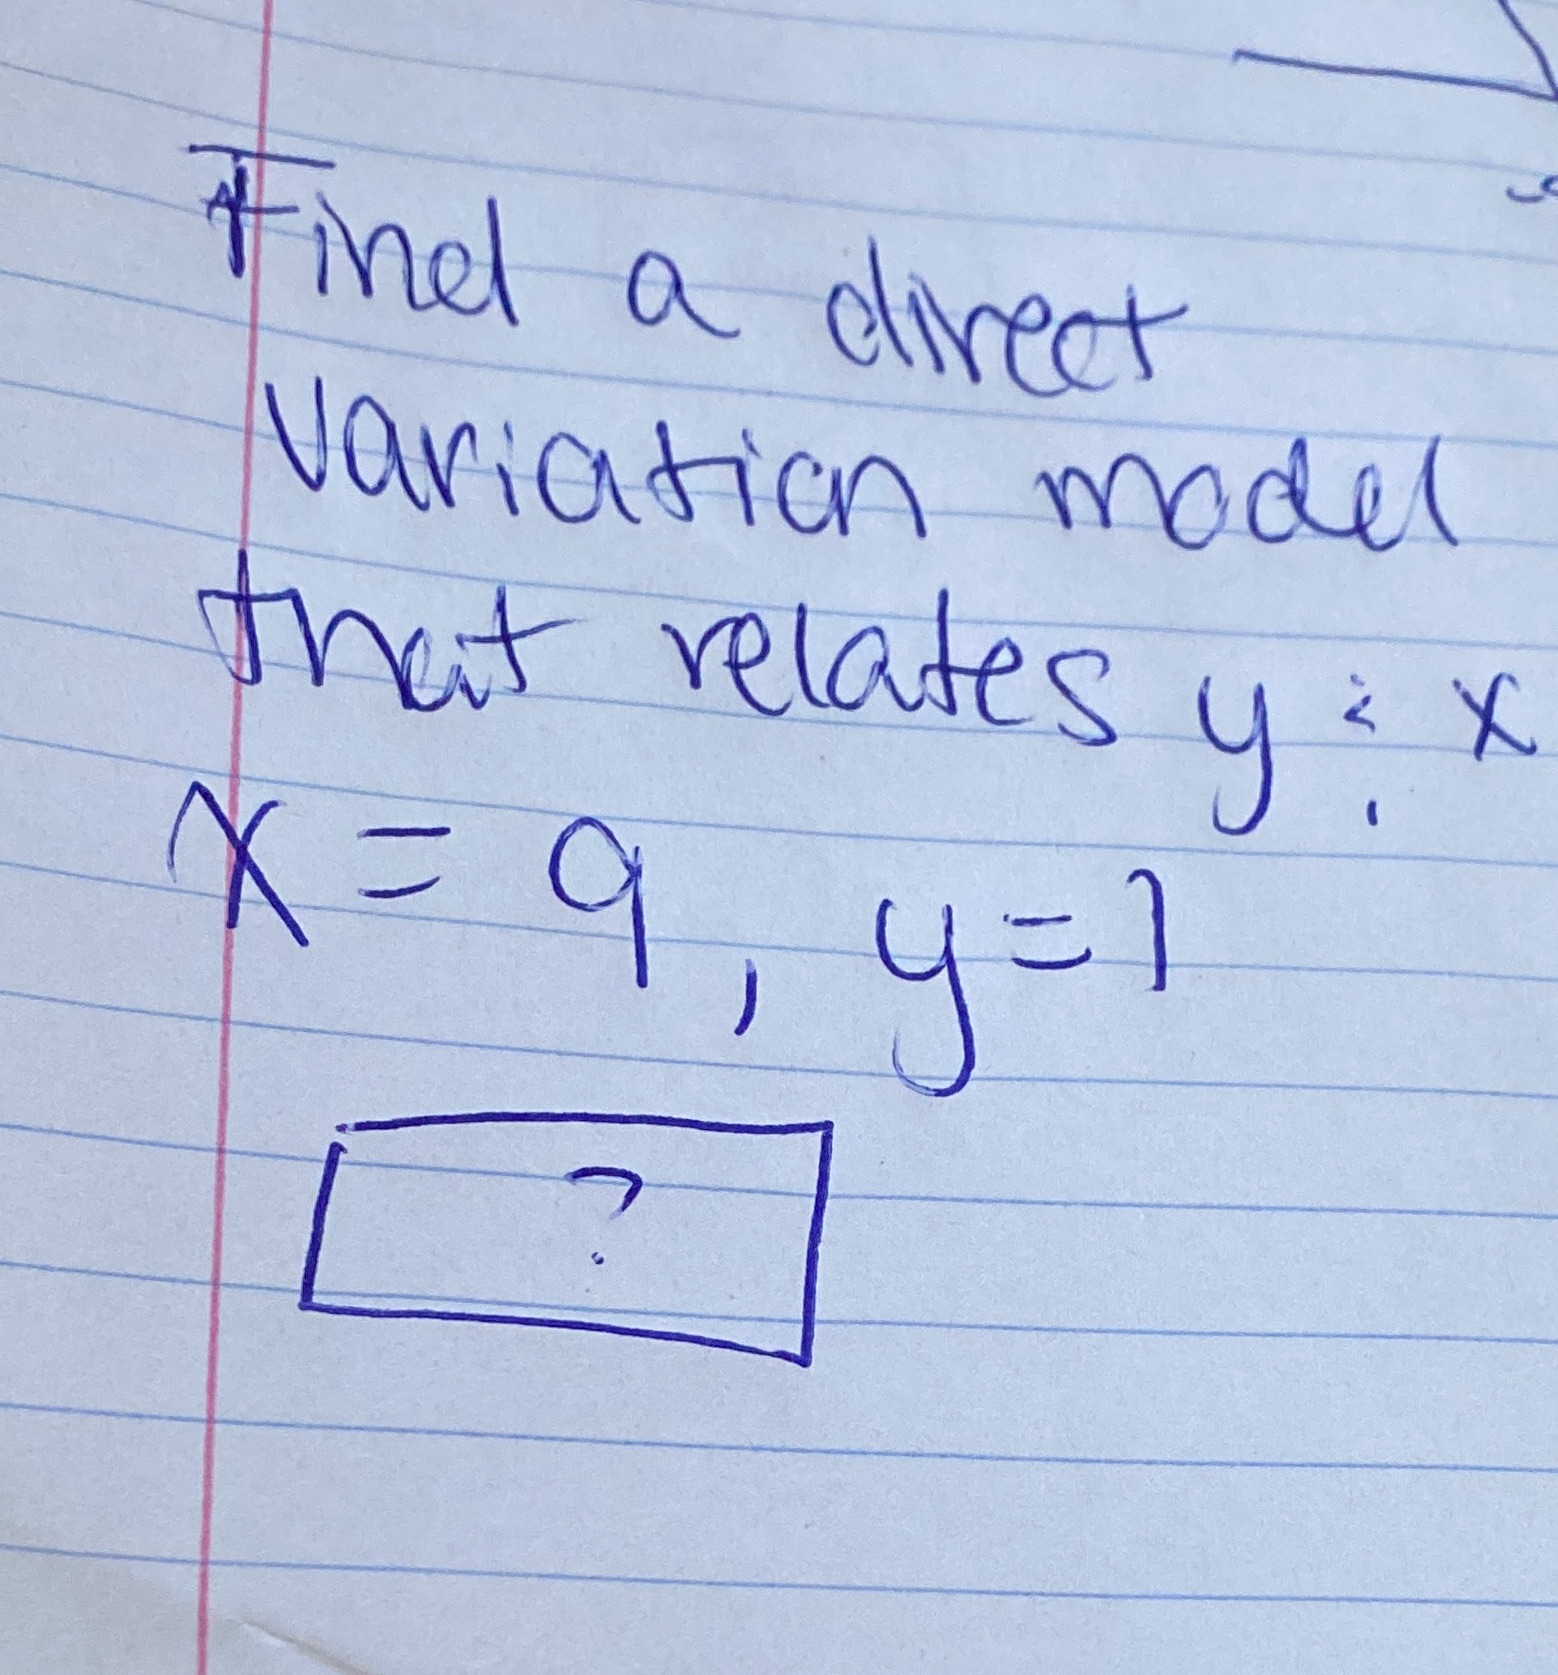 Find a direct
variation model
that relates y & x.
x = 9, y=1
?